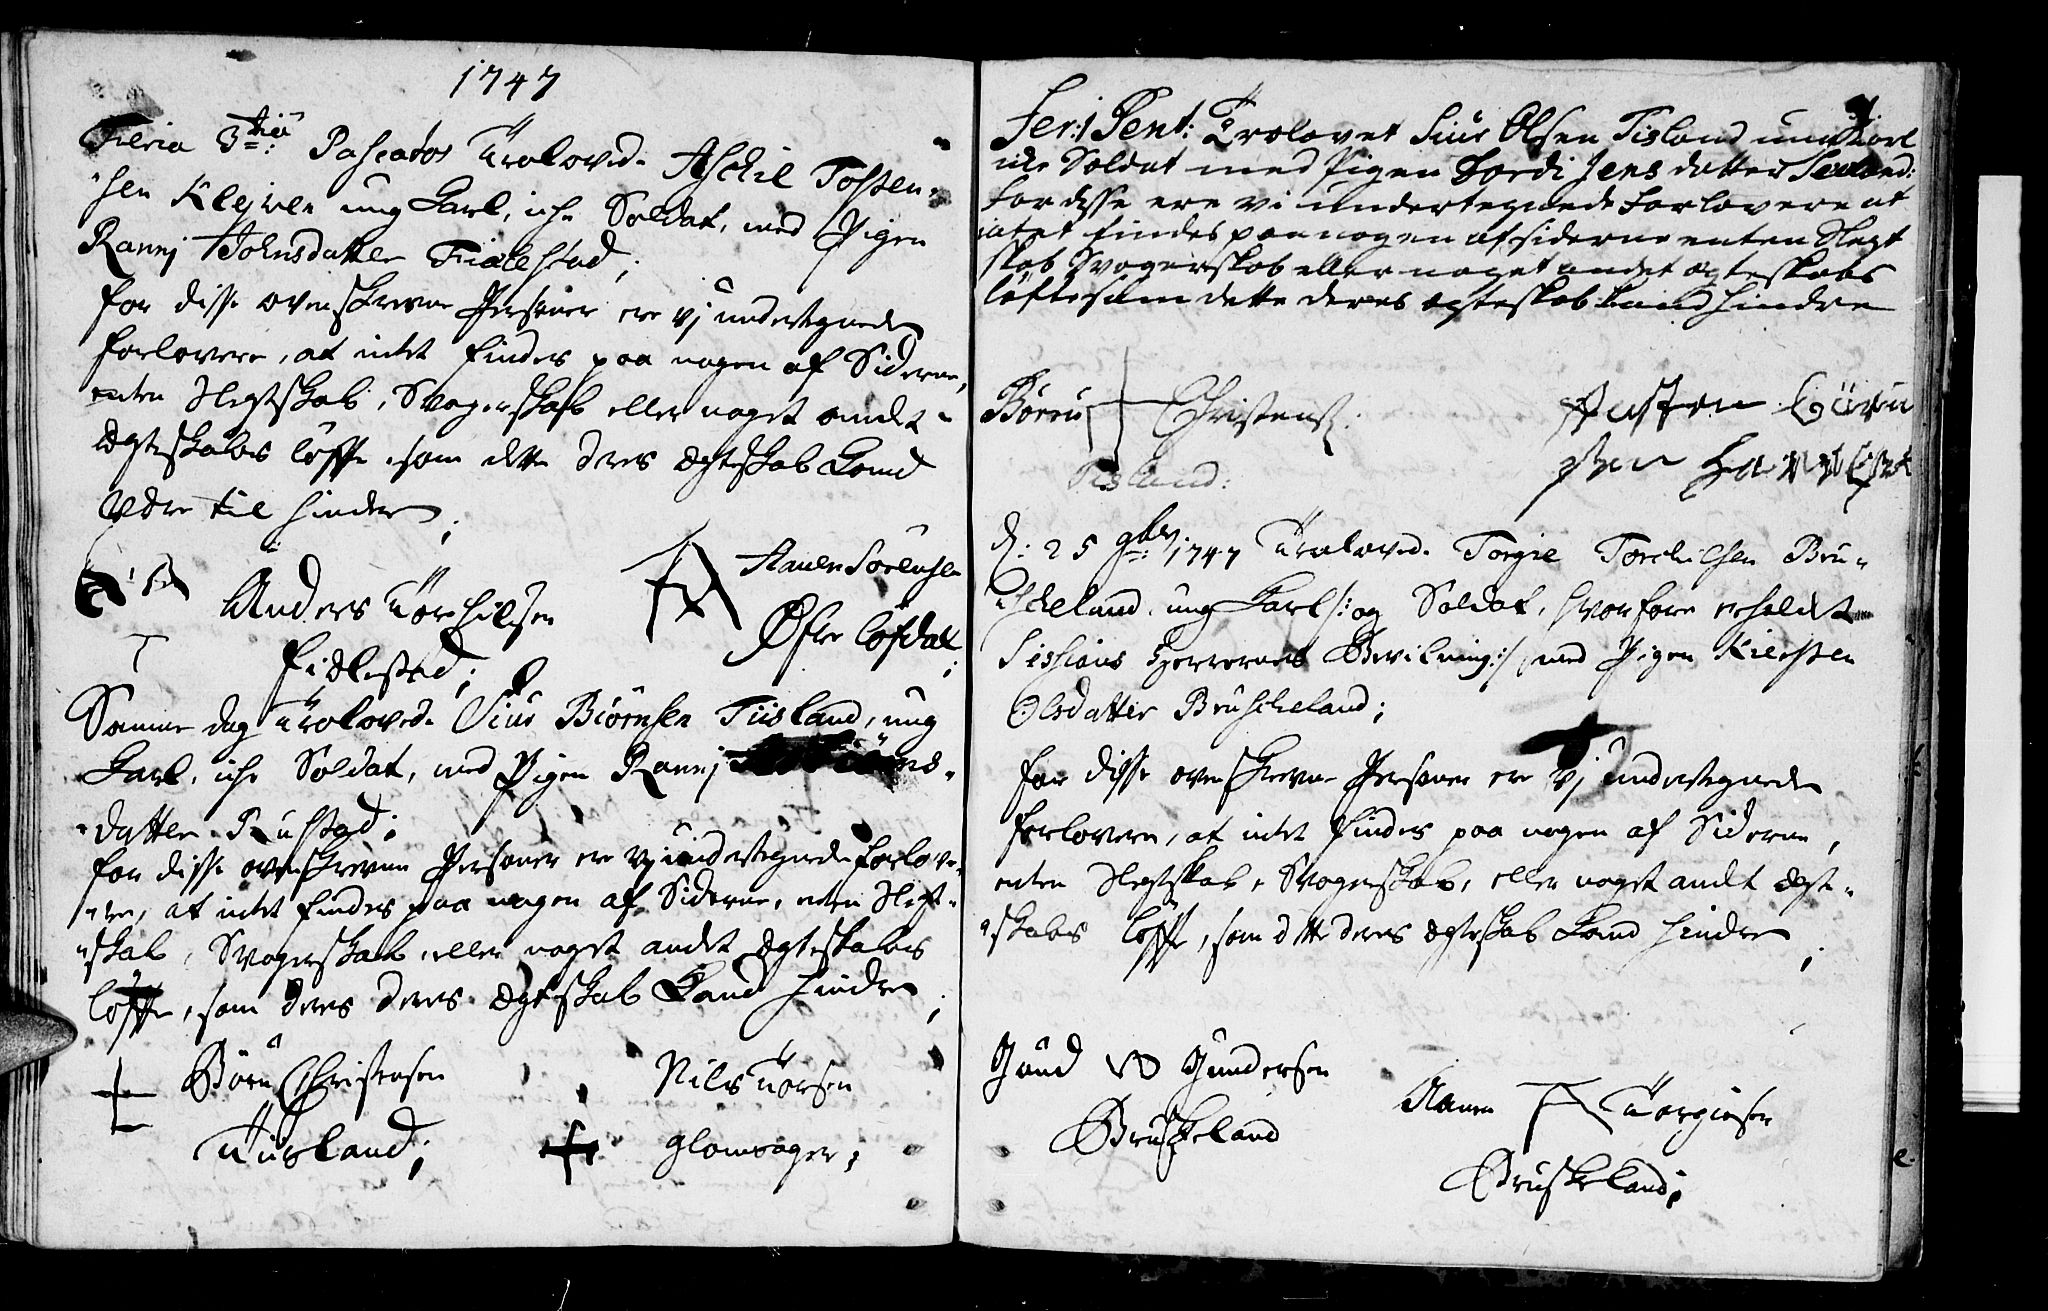 1747
Feria 3tiâ Paschatos Trolovede Aschil Tosten-
sen Klejven ung Karl, iche Soldat, med Pigen
Rannj Johnsdatter Fidlestad;
for disse ovenskrevne Personer ere vj undertegnede
forlovere, at intet findes paa nogen af Siderne,
enten Slegtskab, Svogerskab eller noget andet
Ægteskabs löffte, som dette deres Ægteskab Kand
være til hinder;
Anders Torchilsen
Fidlestad;
Aanen Sörensen
Öfre löfdall;
Samme dag Trolovede Siur Biörnsen Tiisland, ung
Karl, iche Soldat, med Pigen Rannj
datter Rustad;
for disse ovenskrevne Personer ere vj undertegnede forlove-
re, at intet findes paa nogen af Siderne, enten Slegt-
skab, Svogerskab, eller noget andet Ægteskabs
löffte, som deres deres Ægteskab Kand hindre;
Börn Christensen
Tiisland;
Nils Torsen
Glomsager;
Fer: 1 Pent: Trolovet Siur Olsen Tisland ung Karl
iche Soldat med Pigen Tordi Jens datter
For disse ere vi undertegnede Forlovere at
intet findes paa nogen af siderne enten Slegt
skab Svogerskab eller noget andet ægteskabs
löfte som dette deres ægteskab kand hindre
Börn Christens:
Tisland:
d: 25 9br: 1747 Trolovede Torgie Torchelsen Bru-
scheland, ung Karl /: og Soldat, hvorfore erholdet
Sessions Herrernes Bevilning :/ med Pigen Kiersten
Olsdatter Bruscheland;
for disse ovenskrevne Personer ere vj undertegnede
forlovere, at intet findes paa nogen af Siderne,
enten Slegtskab, Svogerskab, eller noget andt Ægte-
skabs löffte, som dette deres Ægteskab Kand hindre;
Gund Gundersen
Bruskeland
Aanen Torgiesen
Bruskeland;